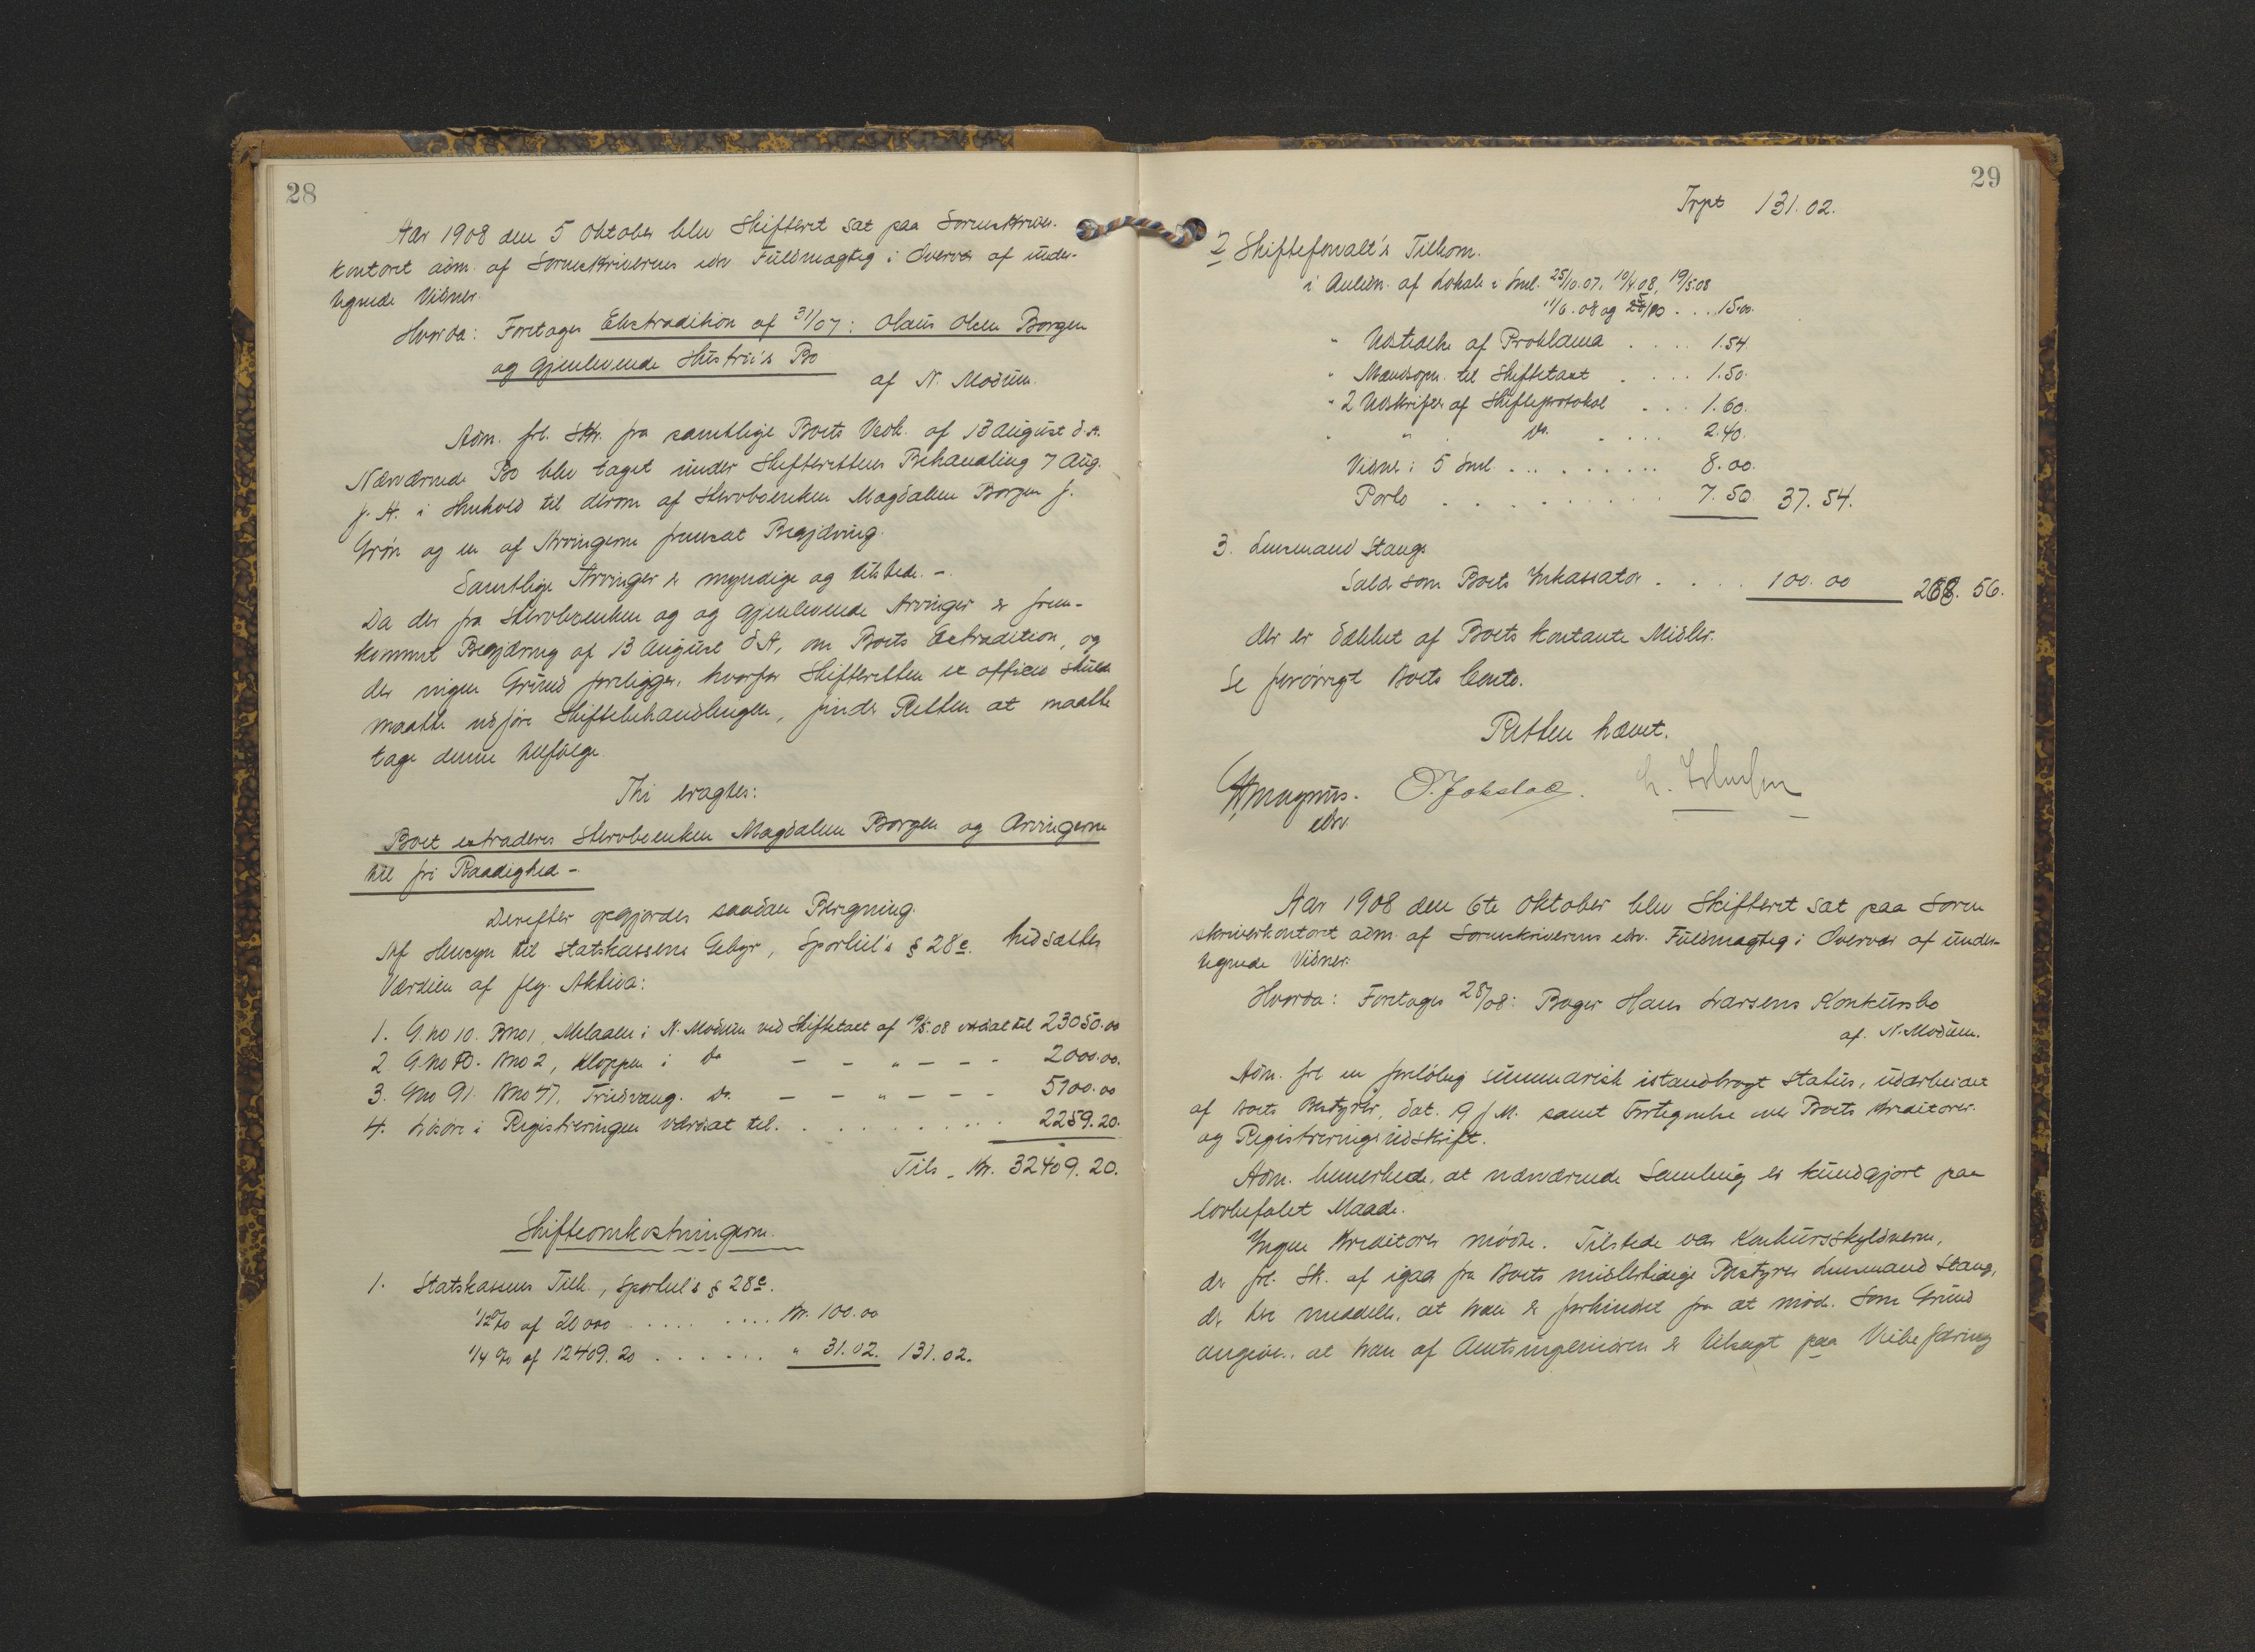 28
Aar 1908 den 5 Oktober blev Skifteret sat paa Sorenskriver-
kontoret adm. af Sorenskriverens edsv. Fuldmægtig i Overvær af under-
tegnede Vidner.
Hvorda: Foretages Ekstradition af 31/07: Olaus Olsen Borgen
og gjenlevende Hustru's Bo
af N. Modum.
Adm. frl. Skr. fra samtlige Boets Vedk. af 13 August d.A.
Nærværende Bo blev taget under Skifterettens Behandling 7 Aug.
f. A. i Henhold til derom af Stervboenken Magdalene Borgen f.
Grøn og en af Arvingerne fremsat Begjæring.
Samtlige Arvinger er myndige og tilstede. –
Da der fra Stervboenken og og gjenlevende Arvinger er frem-
kommet Begjæring af 13 August d.A, om Boets Extradition, og
der ingen Grund foreligger, hvorfor Skifteretten ex officio skulde
maatte udføre Skiftebehandlingen, finder Retten at maatte
tage denne tilfølge.
Thi eragtes:
Boet extraderes Stervboenken Magdalene Borgen og Arvingerne
til fri Raadighed –
Derefter opgjordes saadan Beregning.
Af Hensyn til Statskassens Gebyr, Sportul's § 28 c. hidsættes
Værdien af flg. Aktiva:
1. G.no 10. Bno 1, Melaalen i N. Modum ved Skiftetaxt af 19/5.08 vurdat til 23050.00
2 G.No 10. Bno 2, Kloppen i do – – " – – – 2000.00.
3. Gno 91. Bno 47, Fridvang. do. – – " – – – 5100.00
4. Løsøre i Registreringen værdsat til. . . . . . . . . . 2259.20.
Tils – Kr. 32409.20.
Skifteomkostningerne.
1. Statskassens Tilk., Sportul's § 28 c.
1/2 % af 20000 . . . . . . . . . Kr. 100.00
1/4 % af 12409.20 . . . . . . " 31.02. 131.02.
29
Trpt 131.02.
2 Skifteforvalt's Tilkom.
i Anledn. af Lokale i Sml. 25/10.07, 10/4.08, 19/5.08
11/6.08 og . . . 15.00.
" Udstedelse af Proklama . . . . 1.54.
" Mændsopn. til Skiftetaxt . . . . 1.50.
" 2 Udskrifter af Skifteprotokol . . . 1.60.
" " do. . . . . 2.40.
Vidner i 5 Sml. . . . . . . . . . 8.00.
Porto . . . . . . . . . 7.50 37.54.
3. Lensmand Stangs
Salær som Boets Inkassator . . . . 100.00 268.56.
der er dækket af Boets kontante Midler.
Se forøvrigt Boets Conto.
Retten hævet.
Magnus. O. Jokstad.
edsv.
Aar 1908 den 6te Oktober blev Skifteret sat paa Soren
skriverkontoret adm. af Sorenskriverens edsv. Fuldmægtig i Overvær af under-
tegnede Vidner.
Hvorda: Foretages 28/08: Bager Hans Larsens Konkursbo
af. N. Modum.
Adm. frl en foreløbig summarisk istandbragt Status, udarbeidet
af Boets Bestyrer, dat. 9 f.M. samt Fortegnelse over Boets Kreditorer.
og Registreringsudskrift.
Adm. bemerkede, at nærværende Samling er kundgjort paa
lovbefalet Maade.
Ingen Kreditorer mødte. Tilstede var Konkursskyldneren,
der frl. Sk. af igaar fra Boets midlertidige Bestyrer Lensmand Stang,
der heri meddeler, at han er forhindret fra at møde. Som Grund
angives, at han af Amtsingeniøren er tilsagt paa Veibefaring